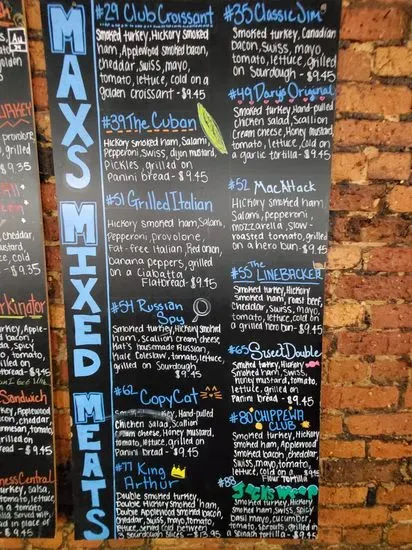 MAXS MIXED MEATS
#29 Club Croissant
Smoked turkey, Hickory smoked
ham, Applewood smoked bacon,
cheddar, Swiss, mayo,
tomato, lettuce, cold on a
golden croissant - $9.45
#39 The Cuban
Hickory smoked ham, Salami,
Pepperoni, Swiss, dijon mustard,
Pickles, grilled on
Panini bread - $9.45
#51 Grilled Italian
Hickory smoked ham, Salami,
Pepperoni, provolone,
Fat-free Italian, Red onion,
banana peppers, grilled
on a Ciabatta
Flatbread - $9.45
#54 Russian
Spy
Smoked turkey, Hickory smoked
ham, scallion cream cheese
Hat's housemade Russian,
Hale Coleslaw, tomato, lettuce,
grilled on Sourdough
- $9.45
#62 CopyCat
Smoked turkey, Hand-pulled
Chicken Salad, Scallion
cream cheese, Honey mustard,
tomato, lettuce, grilled on
Panini bread - $9.45
#77 King
Arthur
Double smoked turkey,
Double Hickory smoked ham,
Double Applewood smoked bacon,
cheddar, Swiss, mayo, tomato,
lettuce, served cold between
3 sourdough slices - $13.95
#35 Classic Jim
Smoked turkey, Canadian
bacon, Swiss, mayo
tomato, lettuce, grilled
on Sourdough - $9.45
#49 Dary's Original
Smoked turkey, Hand-pulled
chicken salad, Scallion
cream cheese, Honey mustard,
tomato, lettuce, cold on
a garlic tortilla - $9.45
#52 MacAttack
Hickory smoked ham,
Salami, pepperoni,
mozzarella, slow-
roasted tomato, grilled
on a hero bun - $9.45
#55 The LINEBACKER
Smoked turkey, Hickory
smoked ham, roast beef,
Cheddar, Swiss, mayo,
tomato, lettuce, cold on
a grilled hero bun - $9.45
#65 Sweet Double
Smoked turkey, Hickory
smoked ham, Swiss,
Honey mustard, tomato,
lettuce, grilled on
Panini bread - $9.45
#80 CHIPPEWA
CLUB
Smoked turkey, Hickory
smoked ham, Applewood
smoked bacon, cheddar,
Swiss, mayo, tomato,
lettuce, cold on a
Flour Tortilla $9.45
#88
Smoked turkey, Hickory
smoked ham, Swiss, spicy
basil mayo, cucumber,
tomato, sprouts, grilled on
a Spinach tortilla - $9.45